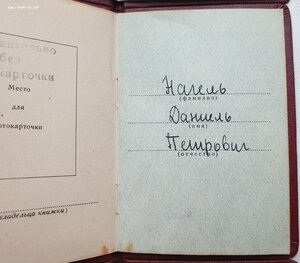 вительно
без
карточки
Место
для
отокарточки
владельца книжки)
Нагель
(фамилия)
Даниель
(имя)
Петрович
(отчество)